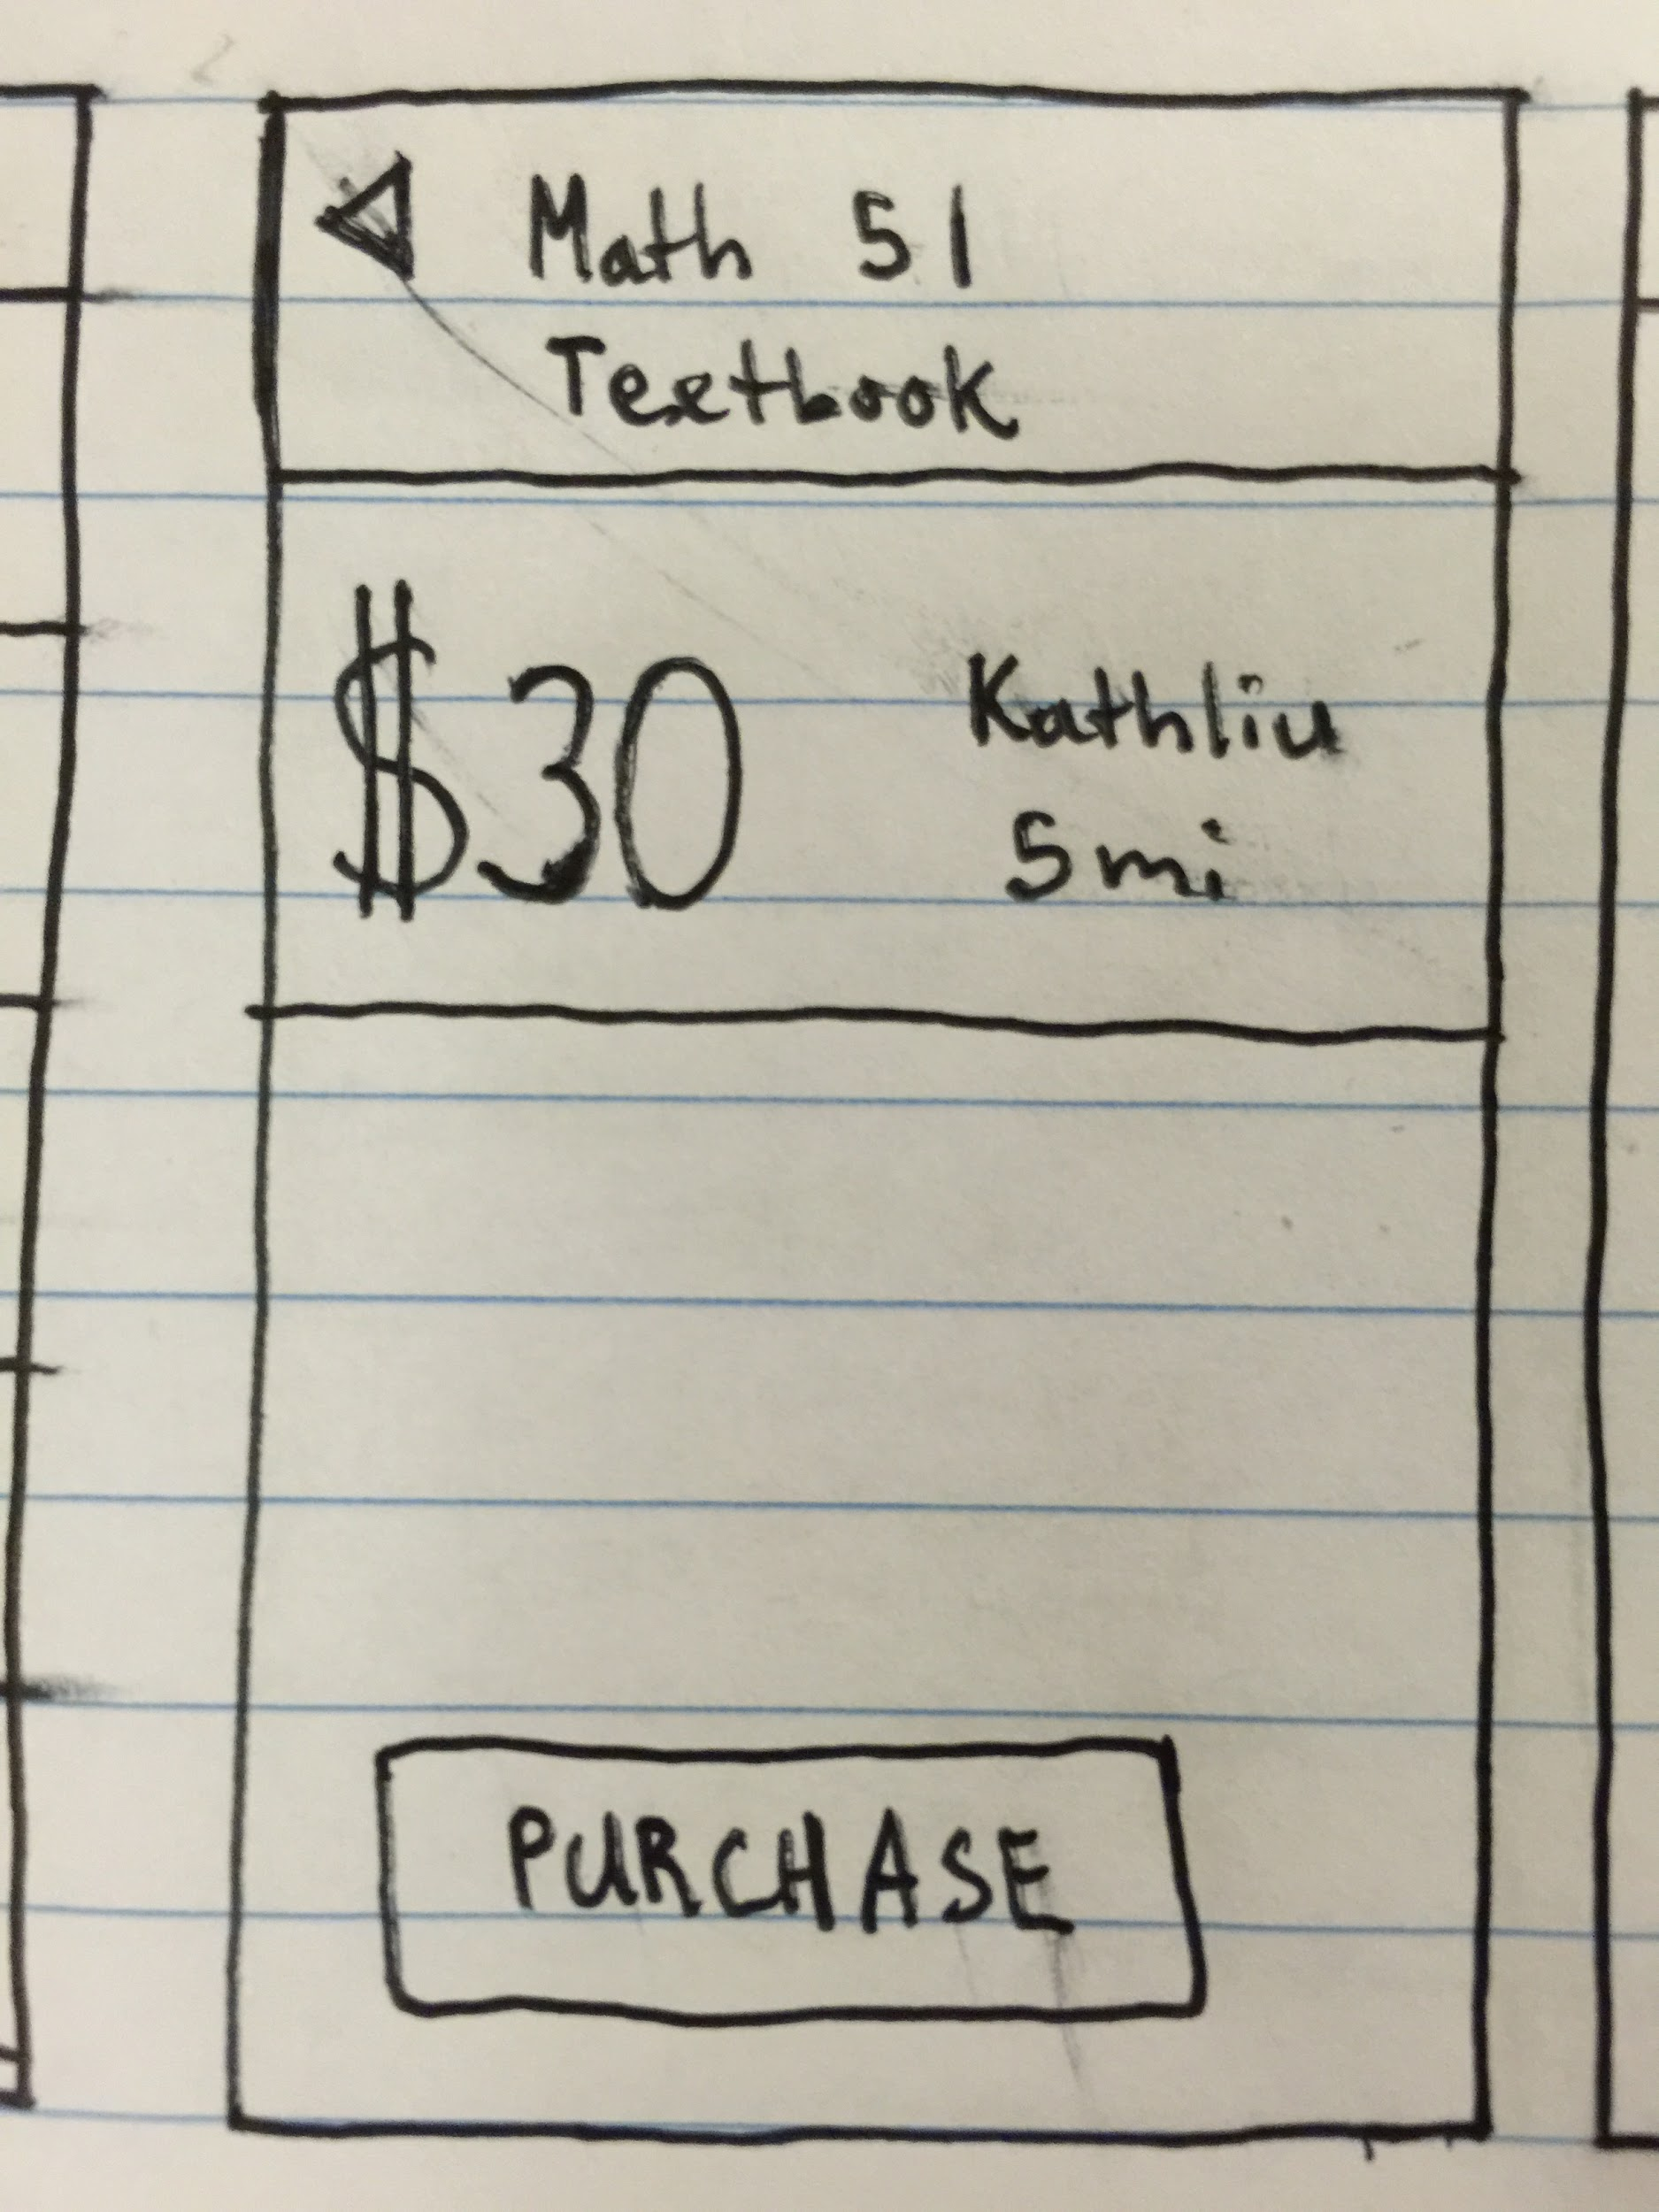 Math 51
Textbook
$30
Kathliu
5mi
PURCHASE